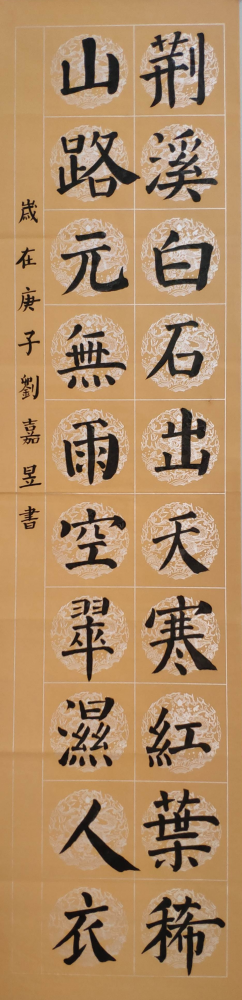 荆溪白石出天寒紅葉稀
山路元無雨空翠濕人衣
歲在庚子劉嘉昱書